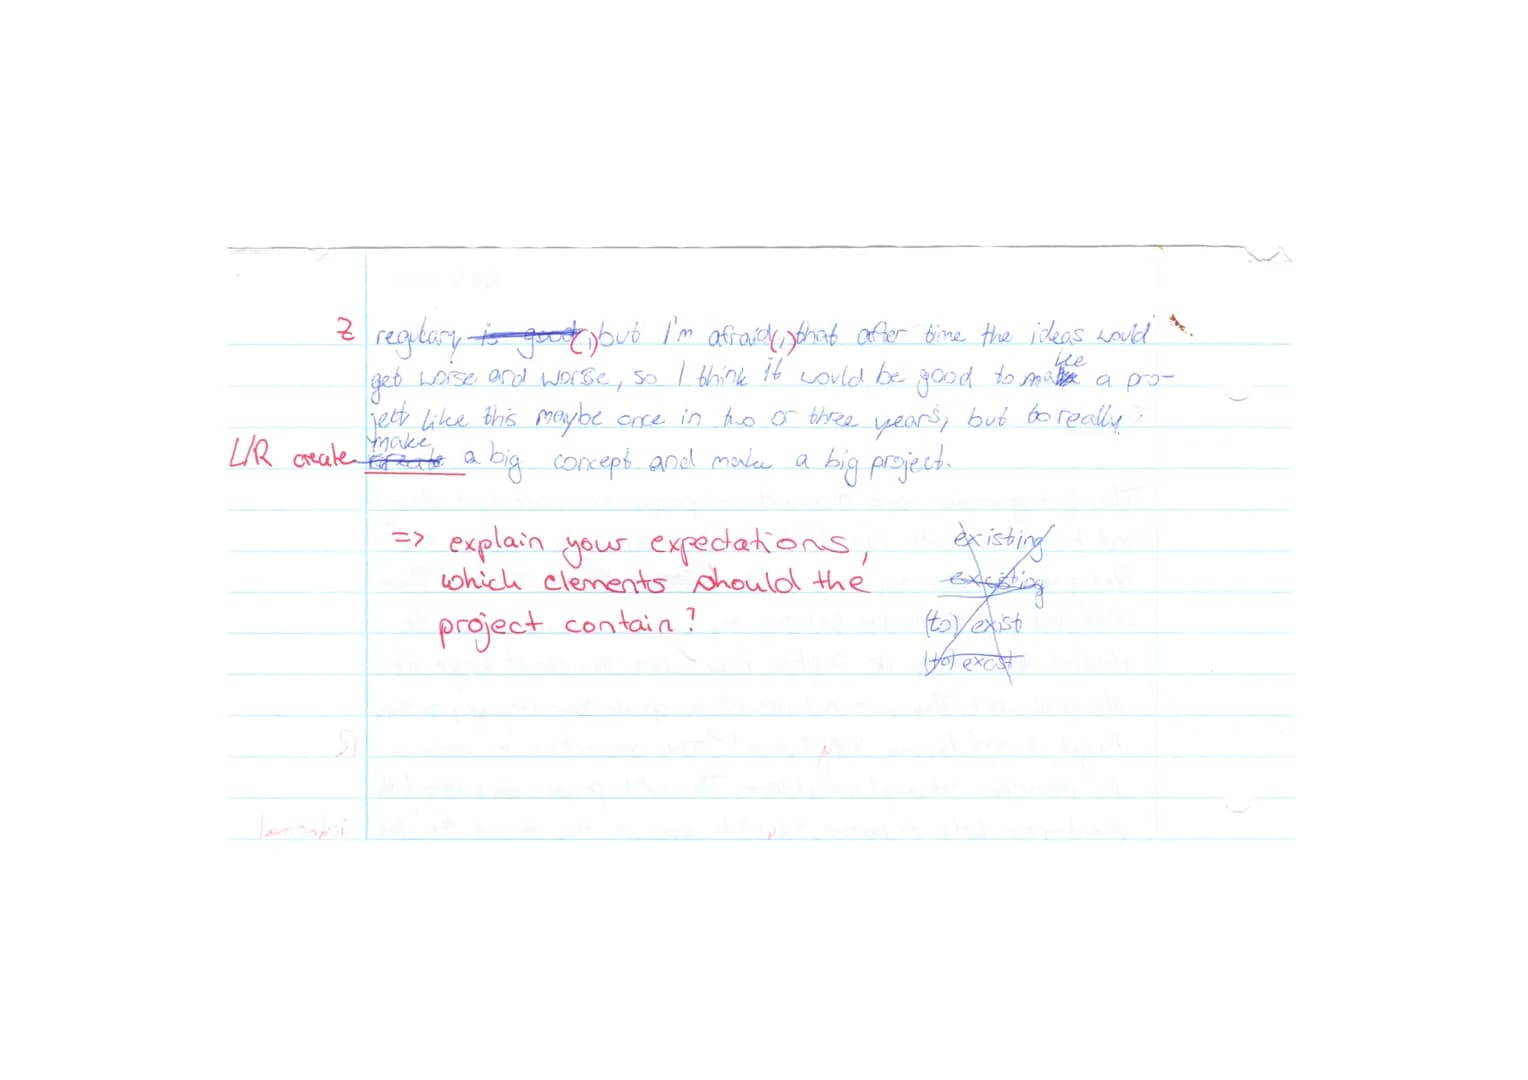 Z regulary is good(,) but I'm afraid(,) that after time the ideas would
get worse and worse, so I think it would be good to make a pro-
ject like this maybe once in two or three years, but to really
make
L/R create create a big concept and make a big project.
=> explain your expectations,
which elements should the
project contain?
existing
excisting
(to) exist
(to) excist